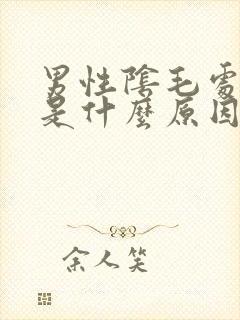 男性陰毛處
是什麼原因
余人笑